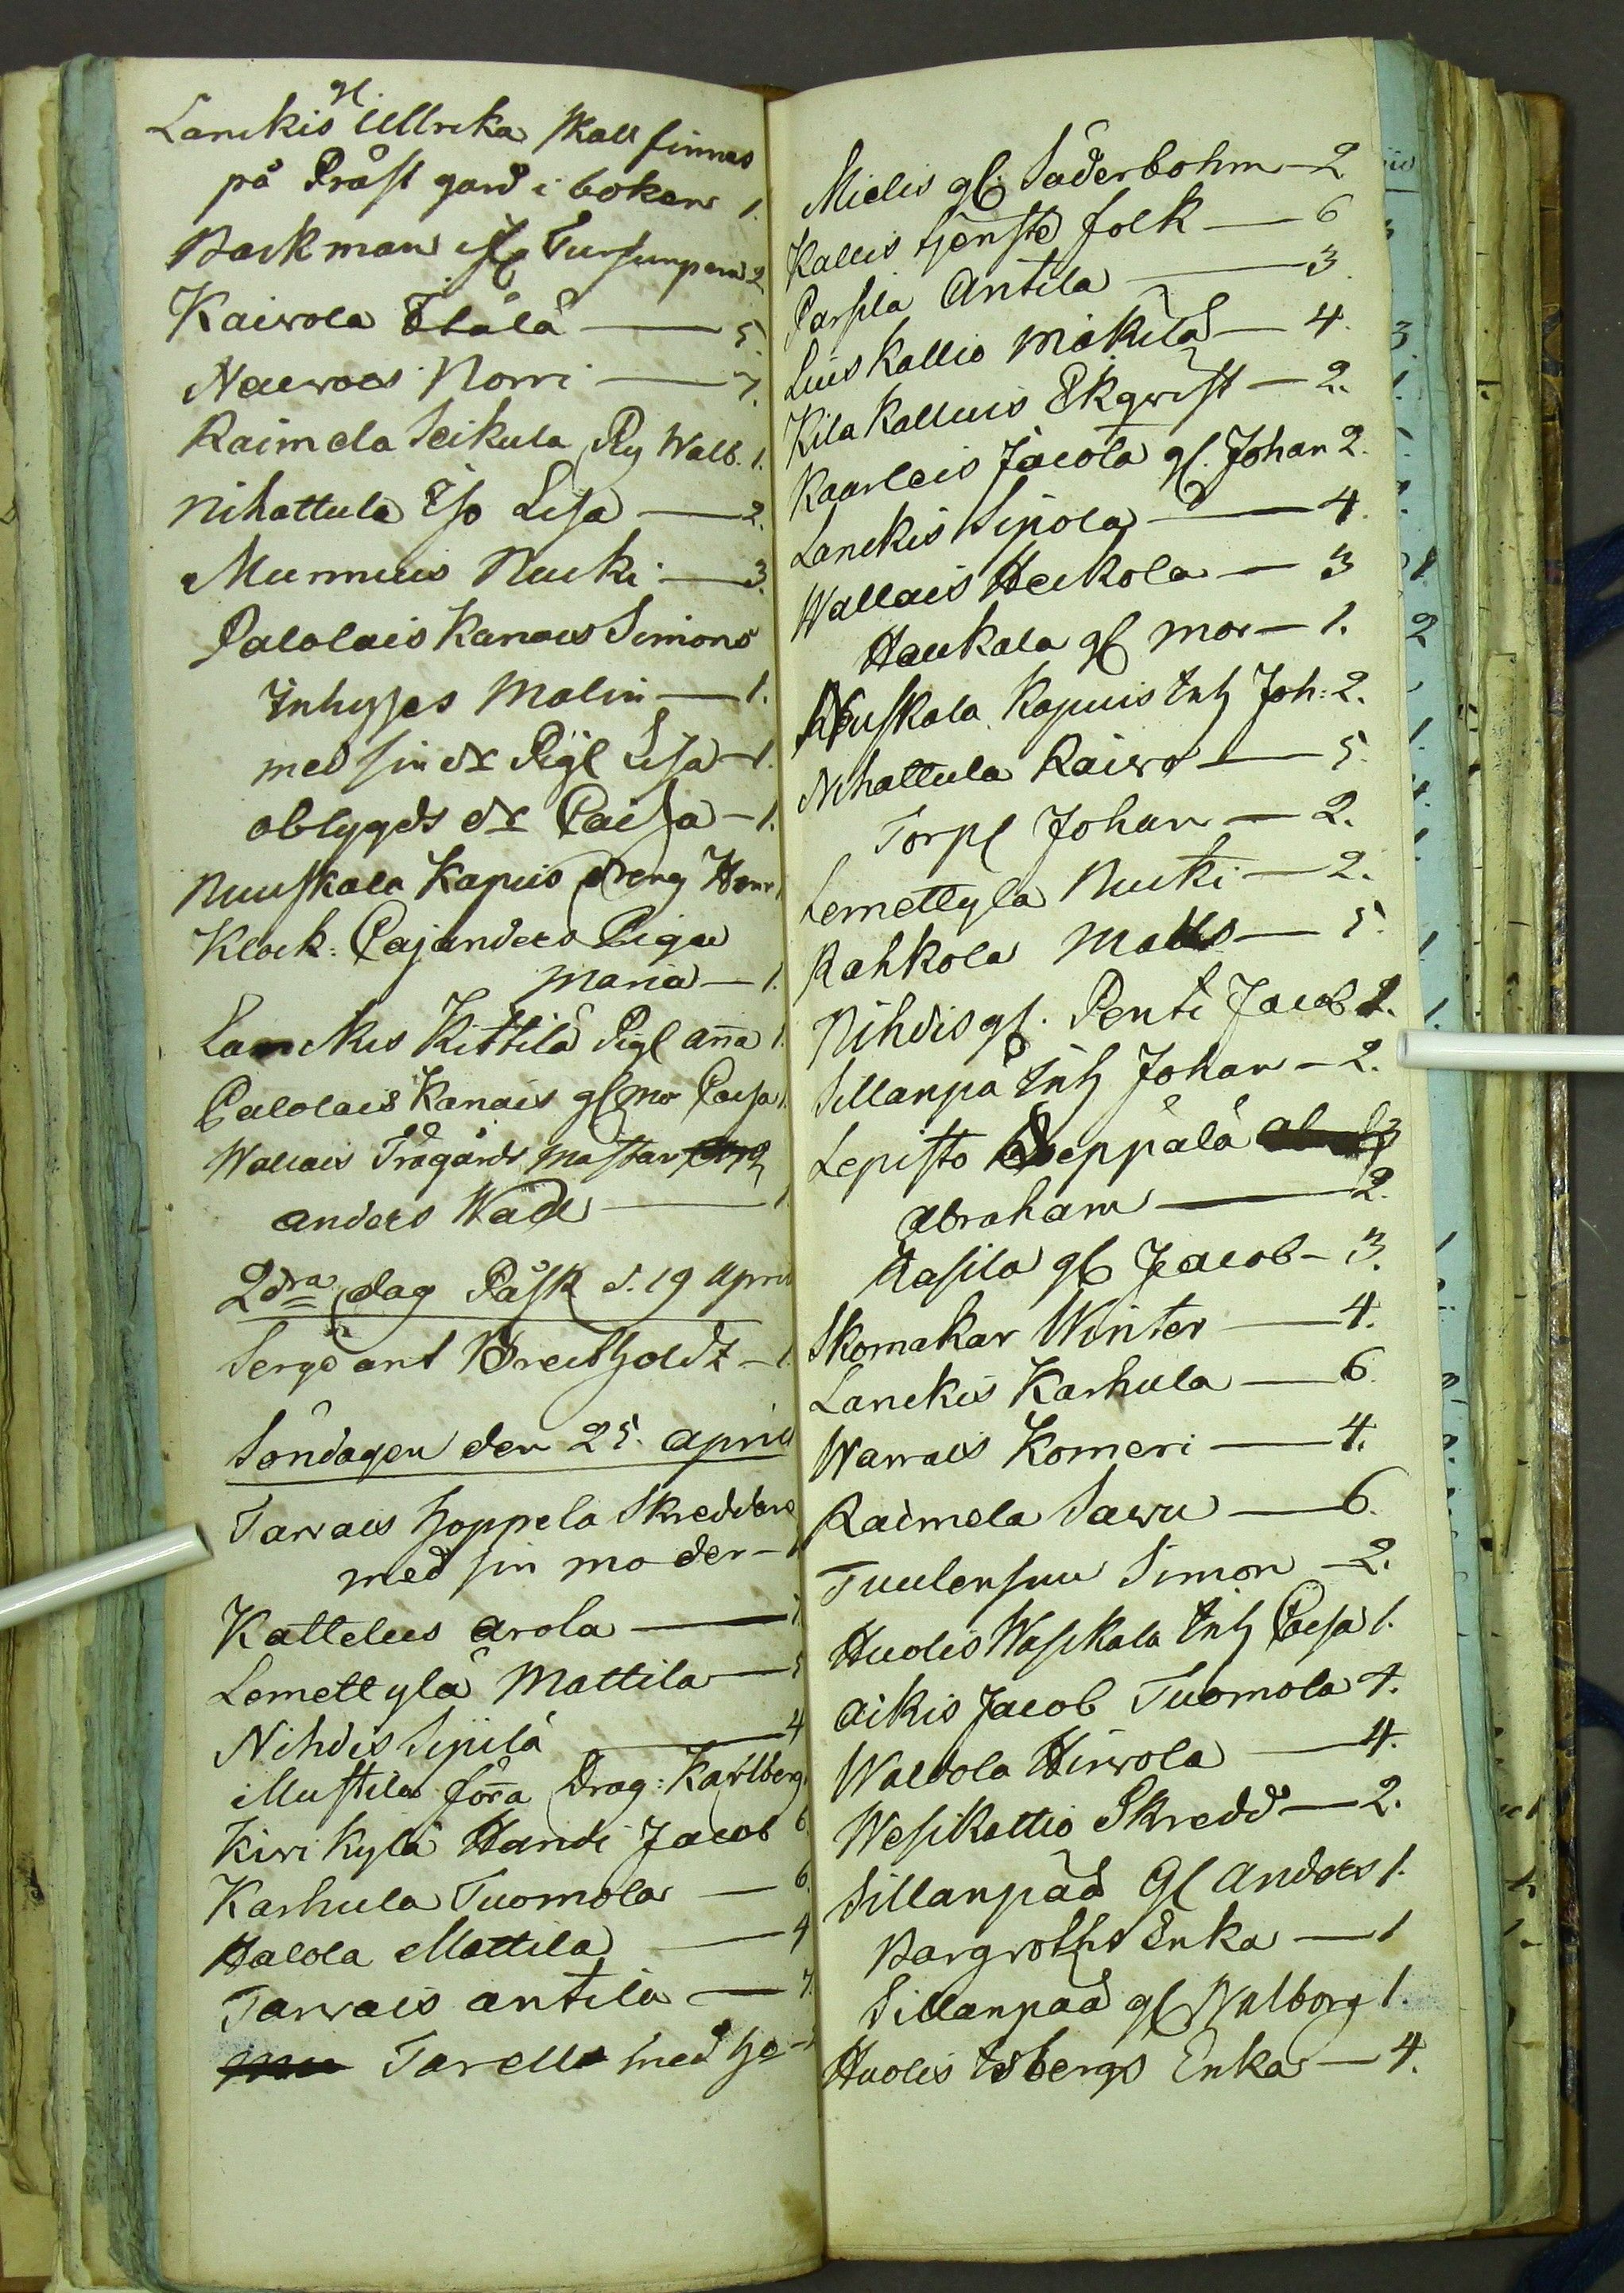 gl.
Lanckis Ullrika skall finnas
på Präst gård i boken 1.
Backman
Kaivola Etälä — 5.
Nauvois Norri — 7.
Raimela Seikula Pig Walb. 1.
Nihattula Eso Lisa — 2.
Munnuis Nucki — 3.
Palolais Kanais Simons
Inhyses Malin — 1.
med sin dr Pigl Lisa — 1.
oblygds dr Caisa — 1.
Nuuskala Kapuis dreng Henr 1
Klock: Cajanders Piga
Maria — 1.
Lanckis Kittilä Pigl Anna 1.
Palolais Kanais gl mo Caisa 1.
Wallais Trägårds mästar
anders Wadl — 1
2dra dag Påsk d. 19 April
Sergeant Breitholdz — 1.
Söndagen den 25. April
Tarvais Hoppela Skreddare
med sin moder —
Kattelus Arola — 7.
Lemettylä Mattila — 5
Nihdis Sipilä — 4
Mustila förra Drag: Karlberg
Kirikylä Handi Jacob 6.
Karhula Tuomola — 6.
Halola Mattila — 4
Tarvais Antila — 7.
Tarella med
Mielis gl. Söderbohm — 2
Kallis tjenste folk — 6
Parsila Antila — 3
Luis Kallio Mäkilä — 4.
Kila Kalluis Ekqvist — 2.
Kaarleis Jacola gl. Johan 2.
Lanckis Sipola — 4
Wallais Heikola — 3
Haukala gl mor — 1.
Nuuskala Kapuis Inh Joh: 2.
Nihattula Raivo — 5.
Torpl Johan — 2.
Lemettyla Nucki — 2.
Rahkola Matts — 5.
Nihdis gl. Penti Jacob 1.
Sillanpä Inh Johan — 2.
Lepistö Seppälä
Abraham — 2.
Rasila gl Jacob — 3.
Skomakar Winter — 4.
Lanckis Karhula — 6.
Warrais Komeri — 4.
Raimela Sawu — 6.
Tuulensuu Simon — 2.
Huolis Wasikala Inh Caisa 1.
Aikis Jacob Tuomola 4.
Waldola Hirvola — 4.
Wesikattio Skredd — 2.
Sillanpää Gl Anders 1.
Bargroths Enka — 1
Sillanpää gl Walborg 1.
Huolis Isbergs Enka — 4.